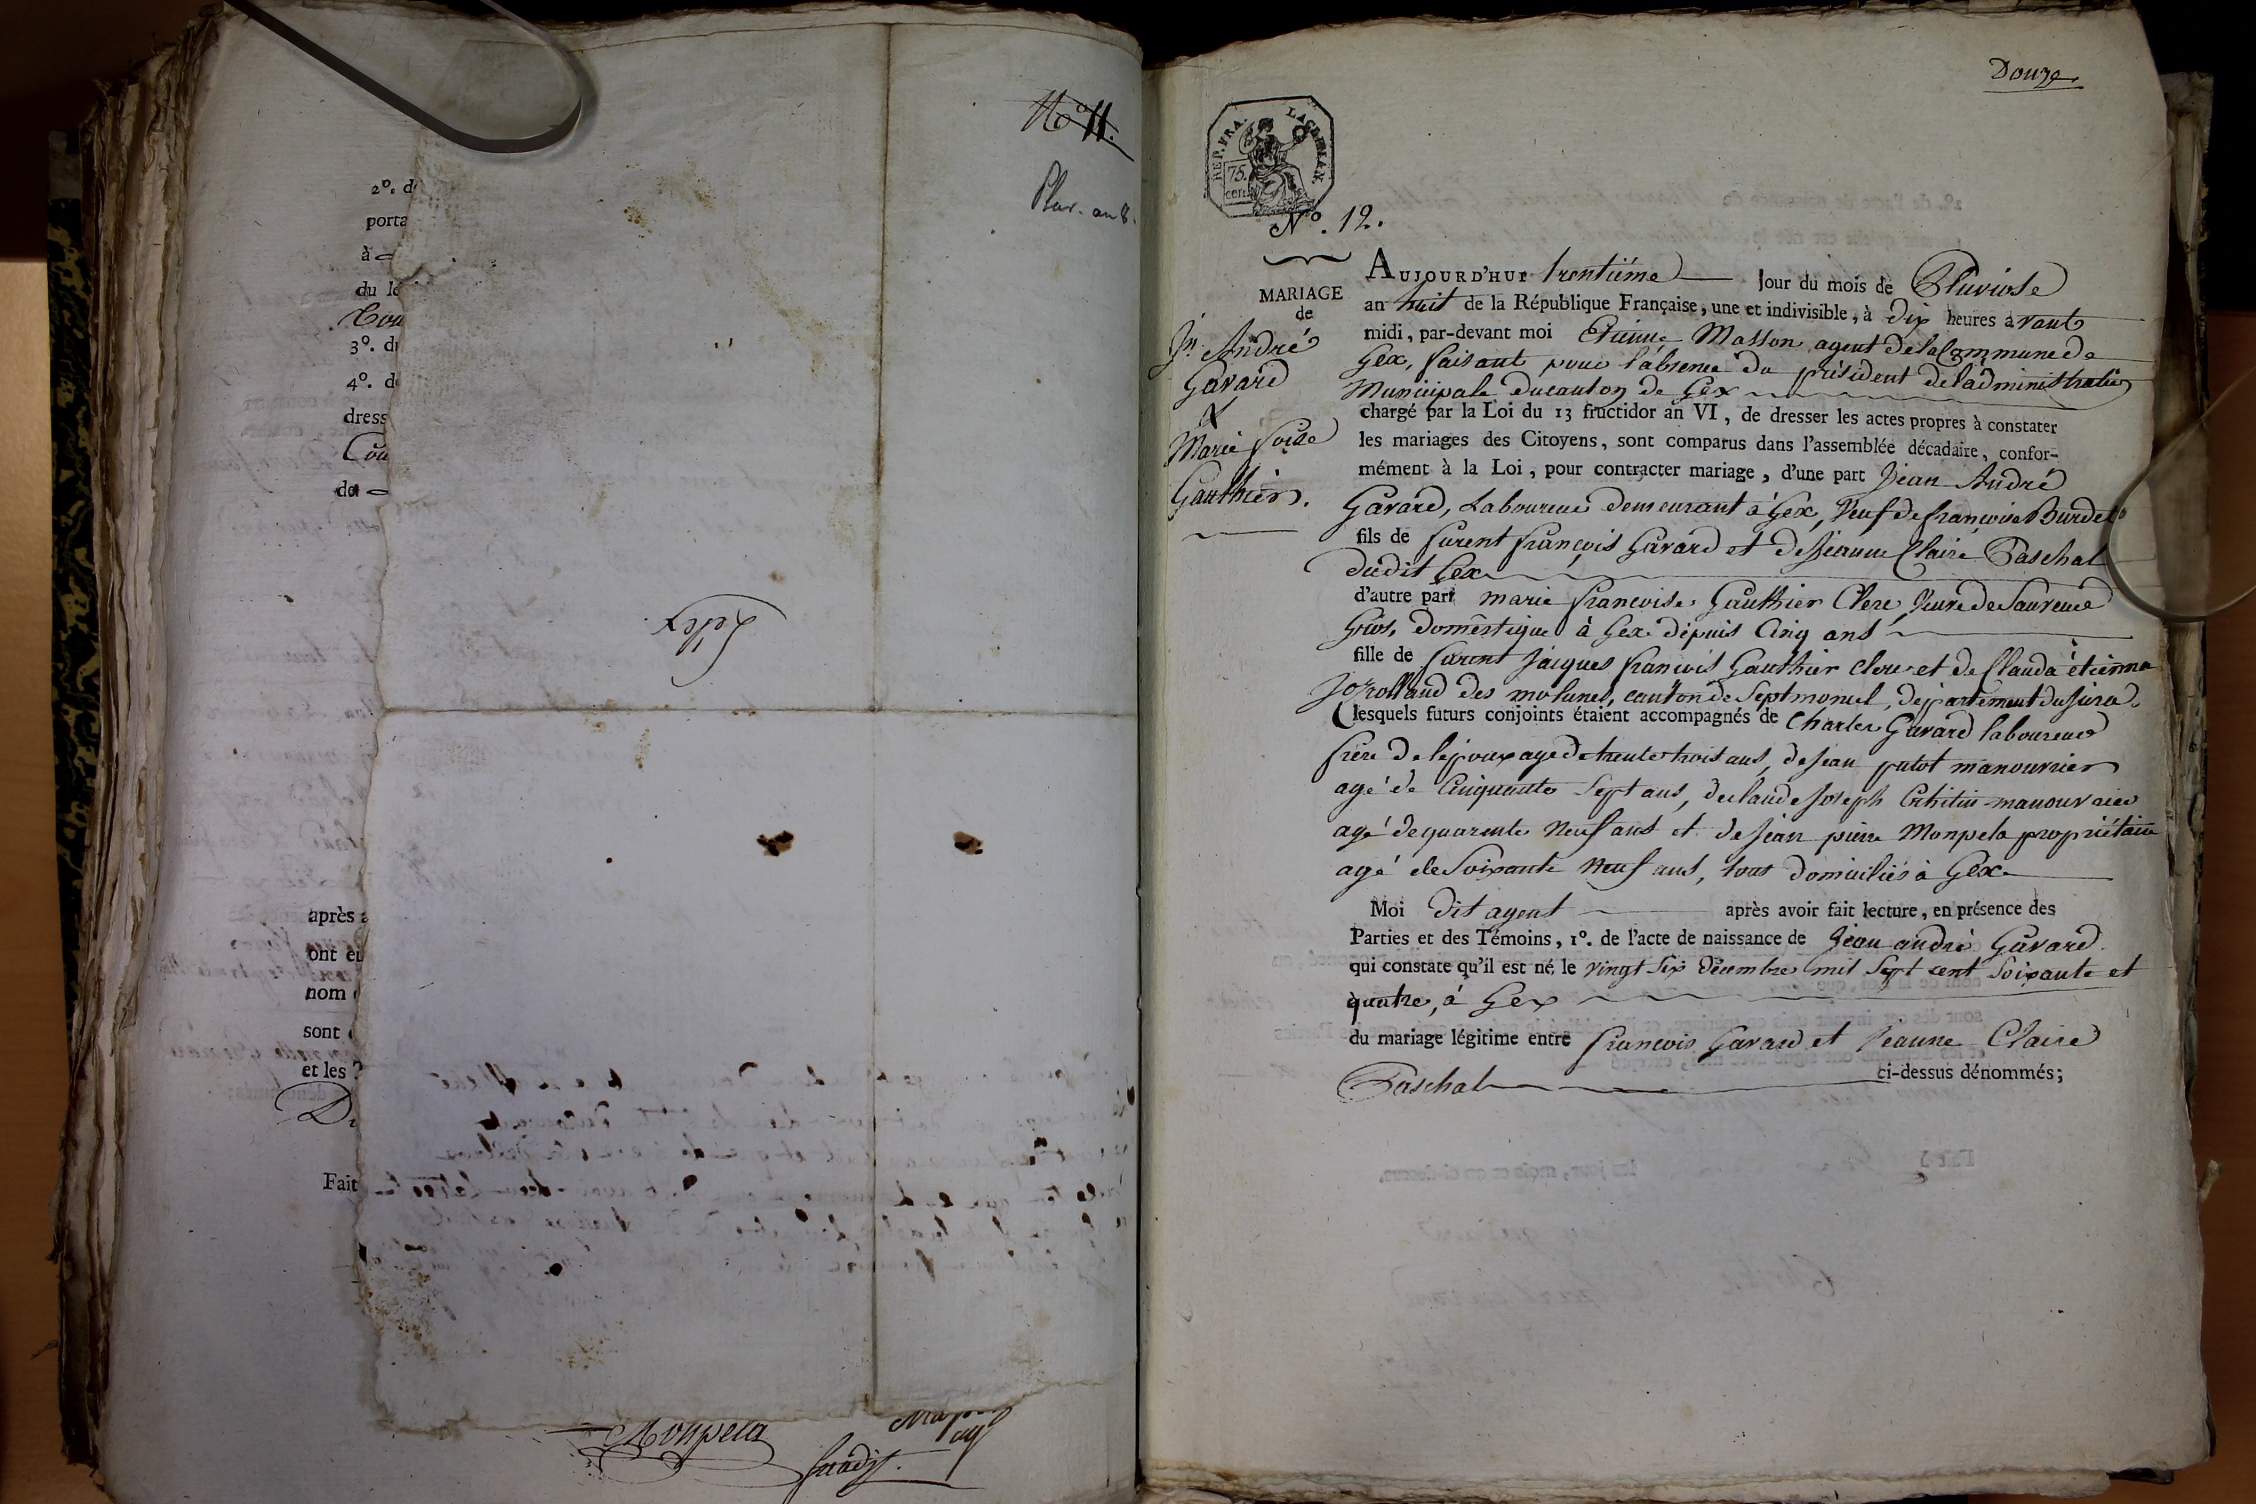 No 11.
Pluv. an 8.
2°. d
porta
à
du le
Cou
3°. du
4°. de
dress
Cou
de
Gex
après a
ont é
nom
sont
et les
De
Fait
Monpela
Douze
REP. FRA.
75. cent.
N°. 12.
MARIAGE
de
Jn. André
Gavard
&
Marie foise
Gauthier.
AUJOURD'HUI trentiéme Jour du mois de Pluviose
an huit de la République Française, une et indivisible, à dix heures avant
midi, par-devant moi Etienne Masson agent de la Commune de
Gex, faisant pour l'absence du président de l'administration
Municipale du canton de Gex
chargé par la Loi du 13 fructidor an VI, de dresser les actes propres à constater
les mariages des Citoyens, sont comparus dans l'assemblée décadaire, confor-
mément à la Loi, pour contracter mariage, d'une part Jean André
Gavard, Laboureur demeurant à Gex, Veuf de françoise Burdet
fils de furent françois Gavard et de Jeanne Claire Paschal
dudit Gex
d'autre part marie françoise Gauthier Clerc, Veuve de Laurence
Gros, domestique à Gex depuis Cinq ans
fille de furent Jacques françois Gauthier clerc et de Clauda étienna
Jorolland des molunes, canton de Septmoncel, departement du Jura
lesquels futurs conjoints étaient accompagnés de Charles Gavard laboureur
frère de l'epoux agé de trente trois ans, de Jean putot manouvrier
agé de Cinquante Sept ans, de claude Joseph manouvrier
agé de quarente Neuf ans et de Jean pierre Monpela propriétaire
agé de Soixante Neuf ans, tous domiciliés à Gex
Moi dit agent après avoir fait lecture, en présence des
Parties et des Témoins, 1°. de l'acte de naissance de Jean andré Gavard
qui constate qu'il est né le vingt Six Décembre mil Sept cent Soixante et
quatre, à Gex
du mariage légitime entre françois Gavard et Jeanne Claire
Paschal ci-dessus dénommés;